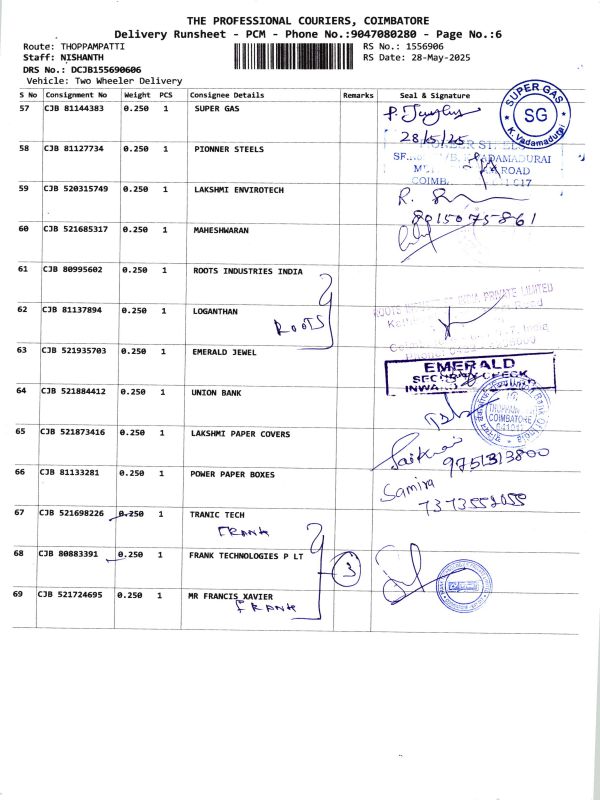 THE PROFESSIONAL COURIERS, COIMBATORE
Delivery Runsheet - PCM - Phone No.:9047080280 - Page No.:6
Route: THOPPAMPATTI RS No.: 1556906
Staff: NISHANTH RS Date: 28-May-2025
DRS No.: DCJB155690606
Vehicle: Two Wheeler Delivery
S No Consignment No Weight PCS Consignee Details Remarks Seal & Signature
57 CJB 81144383 0.250 1 SUPER GAS
SUPER GAS SG K.Vadamadurai
28/5/25
58 CJB 81127734 0.250 1 PIONNER STEELS
VADAMADURAI
ROAD
59 CJB 520315749 0.250 1 LAKSHMI ENVIROTECH
8015075861
60 CJB 521685317 0.250 1 MAHESHWARAN
61 CJB 80995602 0.250 1 ROOTS INDUSTRIES INDIA
ROOTS INDIA PRIVATE LIMITED
62 CJB 81137894 0.250 1 LOGANTHAN
ROOTS
63 CJB 521935703 0.250 1 EMERALD JEWEL
EMERALD
SECURITY CHECK
INWARD
64 CJB 521884412 0.250 1 UNION BANK
THOPPAM
COIMBATORE
641017
65 CJB 521873416 0.250 1 LAKSHMI PAPER COVERS
9751313800
66 CJB 81133281 0.250 1 POWER PAPER BOXES
Samira
7373552055
67 CJB 521698226 0.250 1 TRANIC TECH
FRANK
68 CJB 80883391 0.250 1 FRANK TECHNOLOGIES P LT
3
69 CJB 521724695 0.250 1 MR FRANCIS XAVIER
FRANK